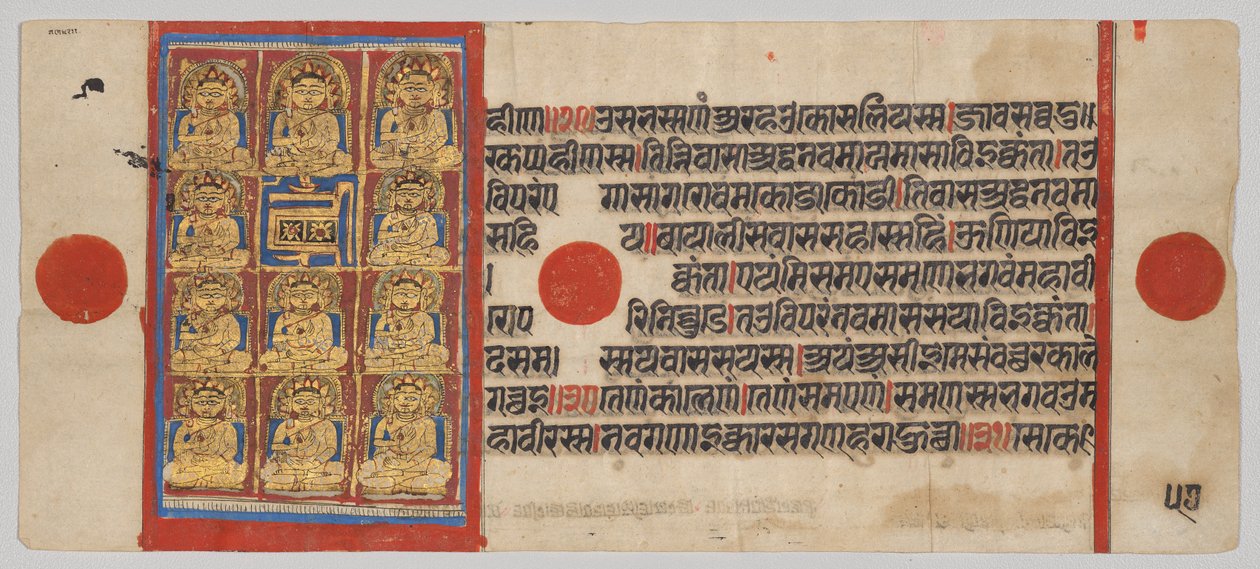 हीणा॥२०॥उसभस्सणं अरहउाकोसलियस्स।जावसव्वदु॥
रकप्पहीणस्स।तिन्निवासाअद्धनवमायमासाविइक्कंता।तउ
विपरंए गासागरोवमकोडाकोडी।तिवासअद्धनवमा
सहि य॥बायालीसवाससहस्सेहिं।ऊणियाविइ
क्कंता।एयंमिसमएसमणेभगवंमहावी
रेप रिनिव्वुडे।तउविपरंनववाससयाविइक्कंता।
दसम। स्सयवाससयस्स।अयंअसीइमेसंवच्छरेकाले
गच्छइ॥३०तेणंकालेणं।तेणंसमएणं।समणस्सभगवउम
हावीरस्स।नवगणाइक्कारसगणहराहुत्था॥३१॥
५७